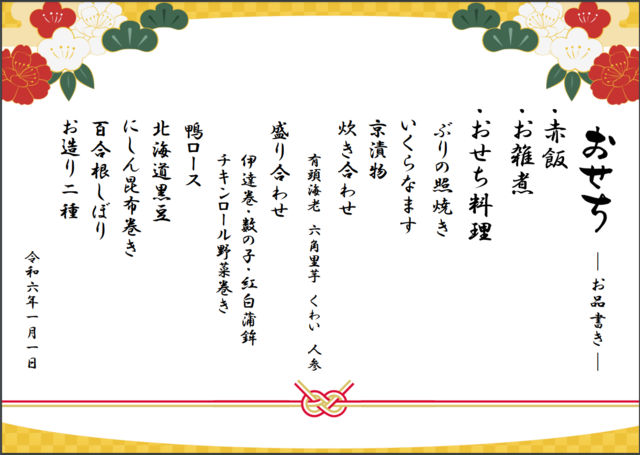 おせち
― お品書き ―
・赤飯
・お雑煮
・おせち料理
ぶりの照焼き
いくらなます
京漬物
炊き合わせ
有頭海老 六角里芋 くわい 人参
盛り合わせ
伊達巻・数の子・紅白蒲鉾
チキンロール野菜巻き
鴨ロース
北海道黒豆
にしん昆布巻き
百合根しぼり
お造り二種
令和六年一月一日